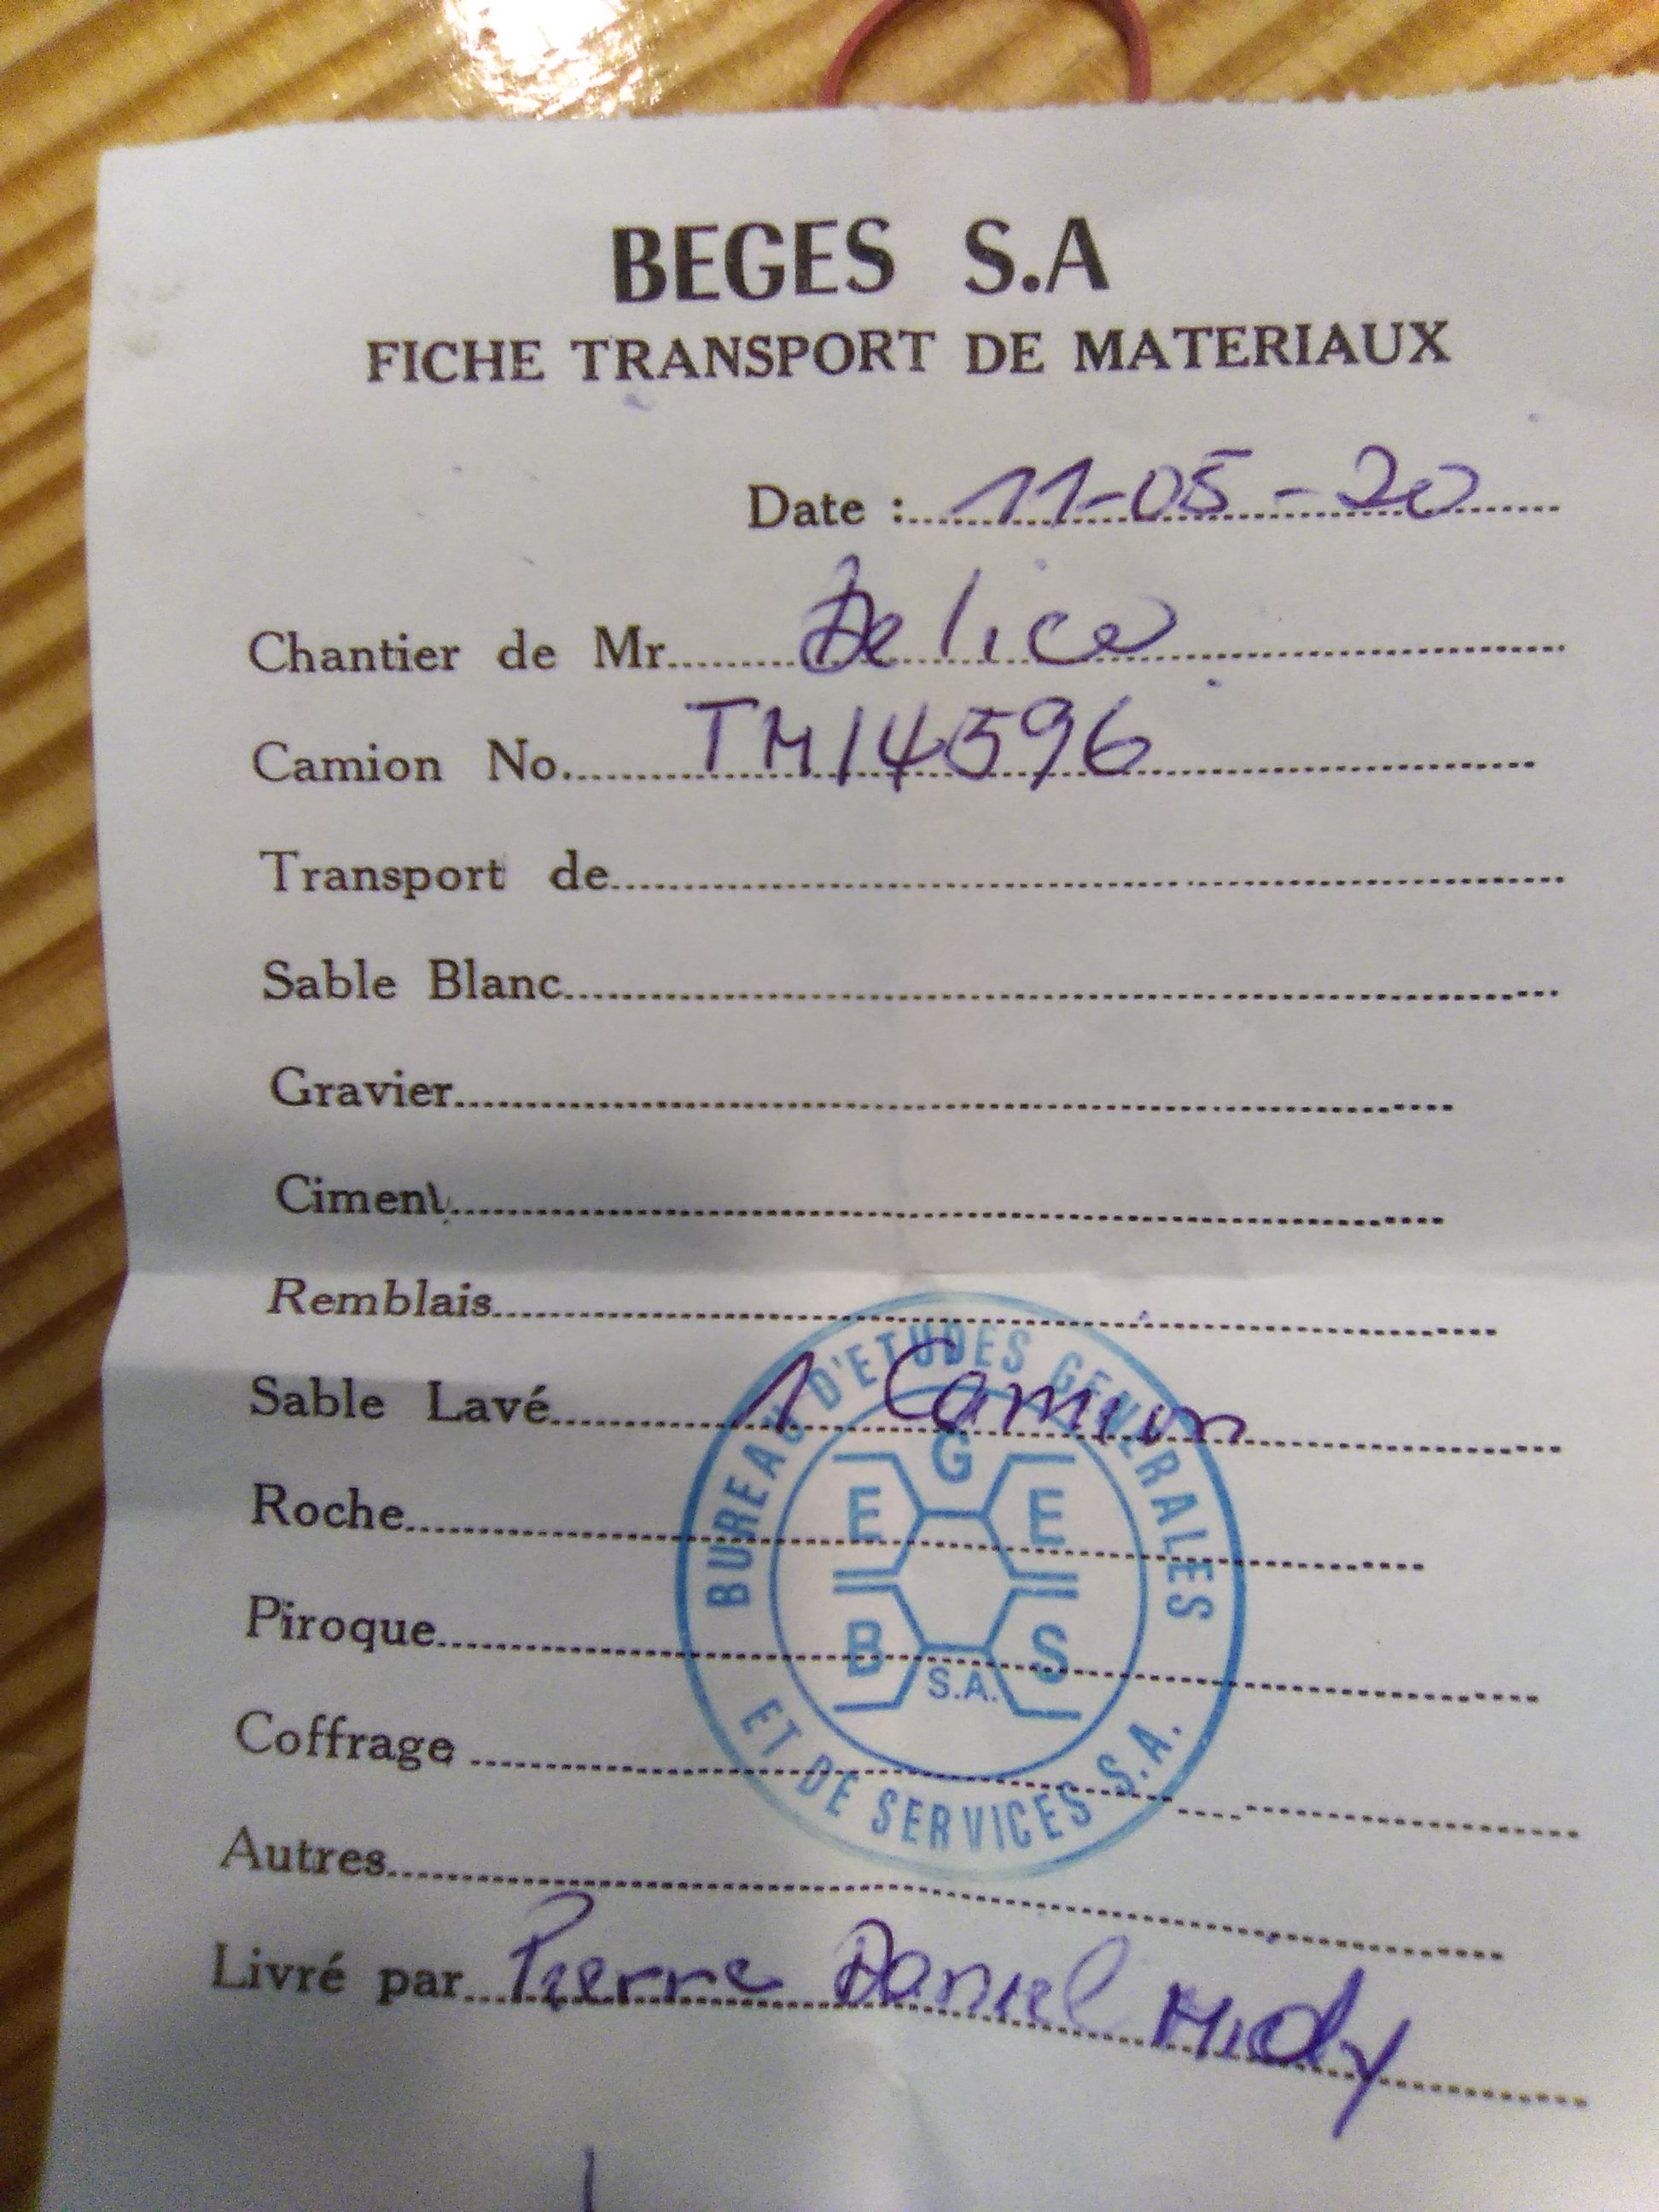 BEGES S.A
FICHE TRANSPORT DE MATERIAUX
Date : 11-05-20
Chantier de Mr. Delice
Camion No. TM14596
Transport de
Sable Blanc
Gravier
Ciment
Remblais
Sable Lavé 1 Camion
Roche
Piroque
Coffrage
Autres
Livré par Pierre Daniel Midy
BUREAU D'ETUDES GENERALES
G
E E
B S
S.A.
ET DE SERVICES S.A.